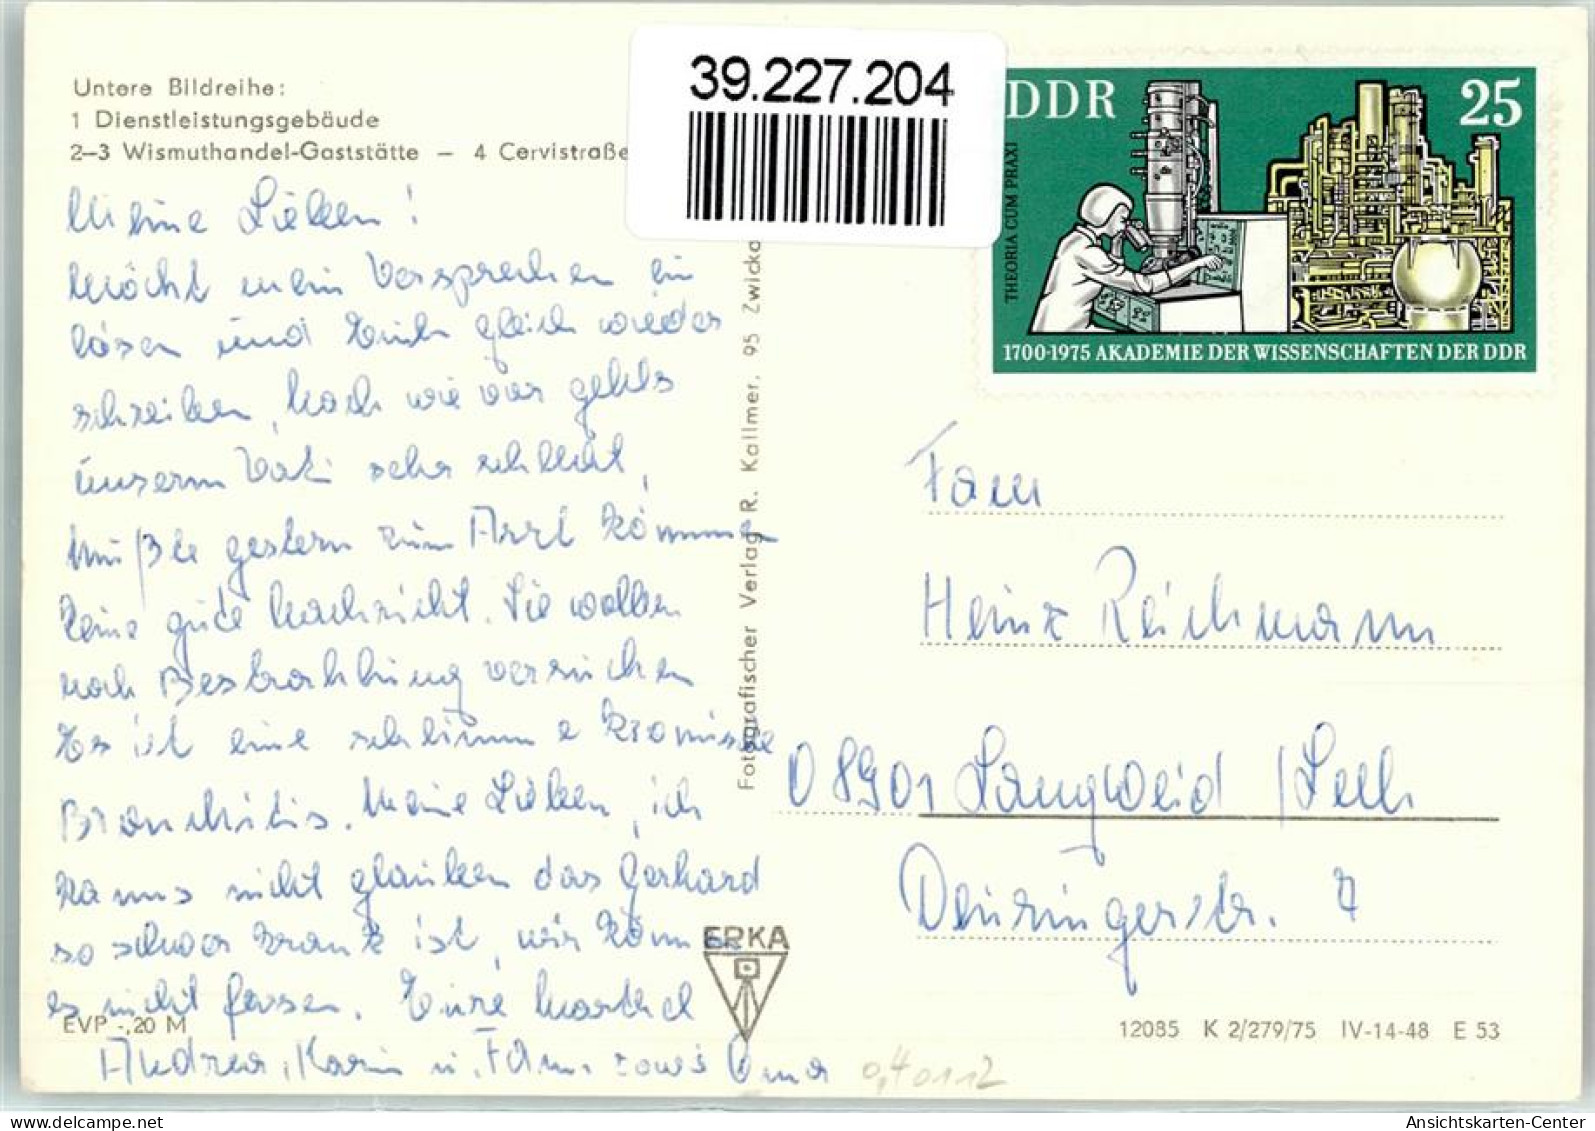 Untere Bildreihe:
1 Dienstleistungsgebäude
2–3 Wismuthandel-Gaststätte – 4 Cervistraße
39.227.204
DDR 25
THEORIA CUM PRAXI
1700-1975 AKADEMIE DER WISSENSCHAFTEN DER DDR
Meine Lieben!
Möcht mein Versprechen ein
lösen und Euch gleich wieder
schreiben, Nach wie vor gehts
unserm Vati sehr schlecht,
Mußte gestern zum Arzt kommen
keine gute Nachricht. Sie wollen
noch Bestrahlung versuchen
Es ist eine schlimme kronische
Bronchitis. Meine Lieben, ich
kanns nicht glauben das Gerhard
so schwer krank ist, wir können
es nicht fassen. Eure
Andrea, Karin u. Fam. sowie Oma
0,40112
Fotografischer Verlag R. Kallmer, 95 Zwicka
Fam
Heinz Reichmann
D 8901 Langweid / Lech
Deuringerstr. 7
ERKA
EVP -,20 M
12085 K 2/279/75 IV-14-48 E 53
AnsichtsKarten-Center